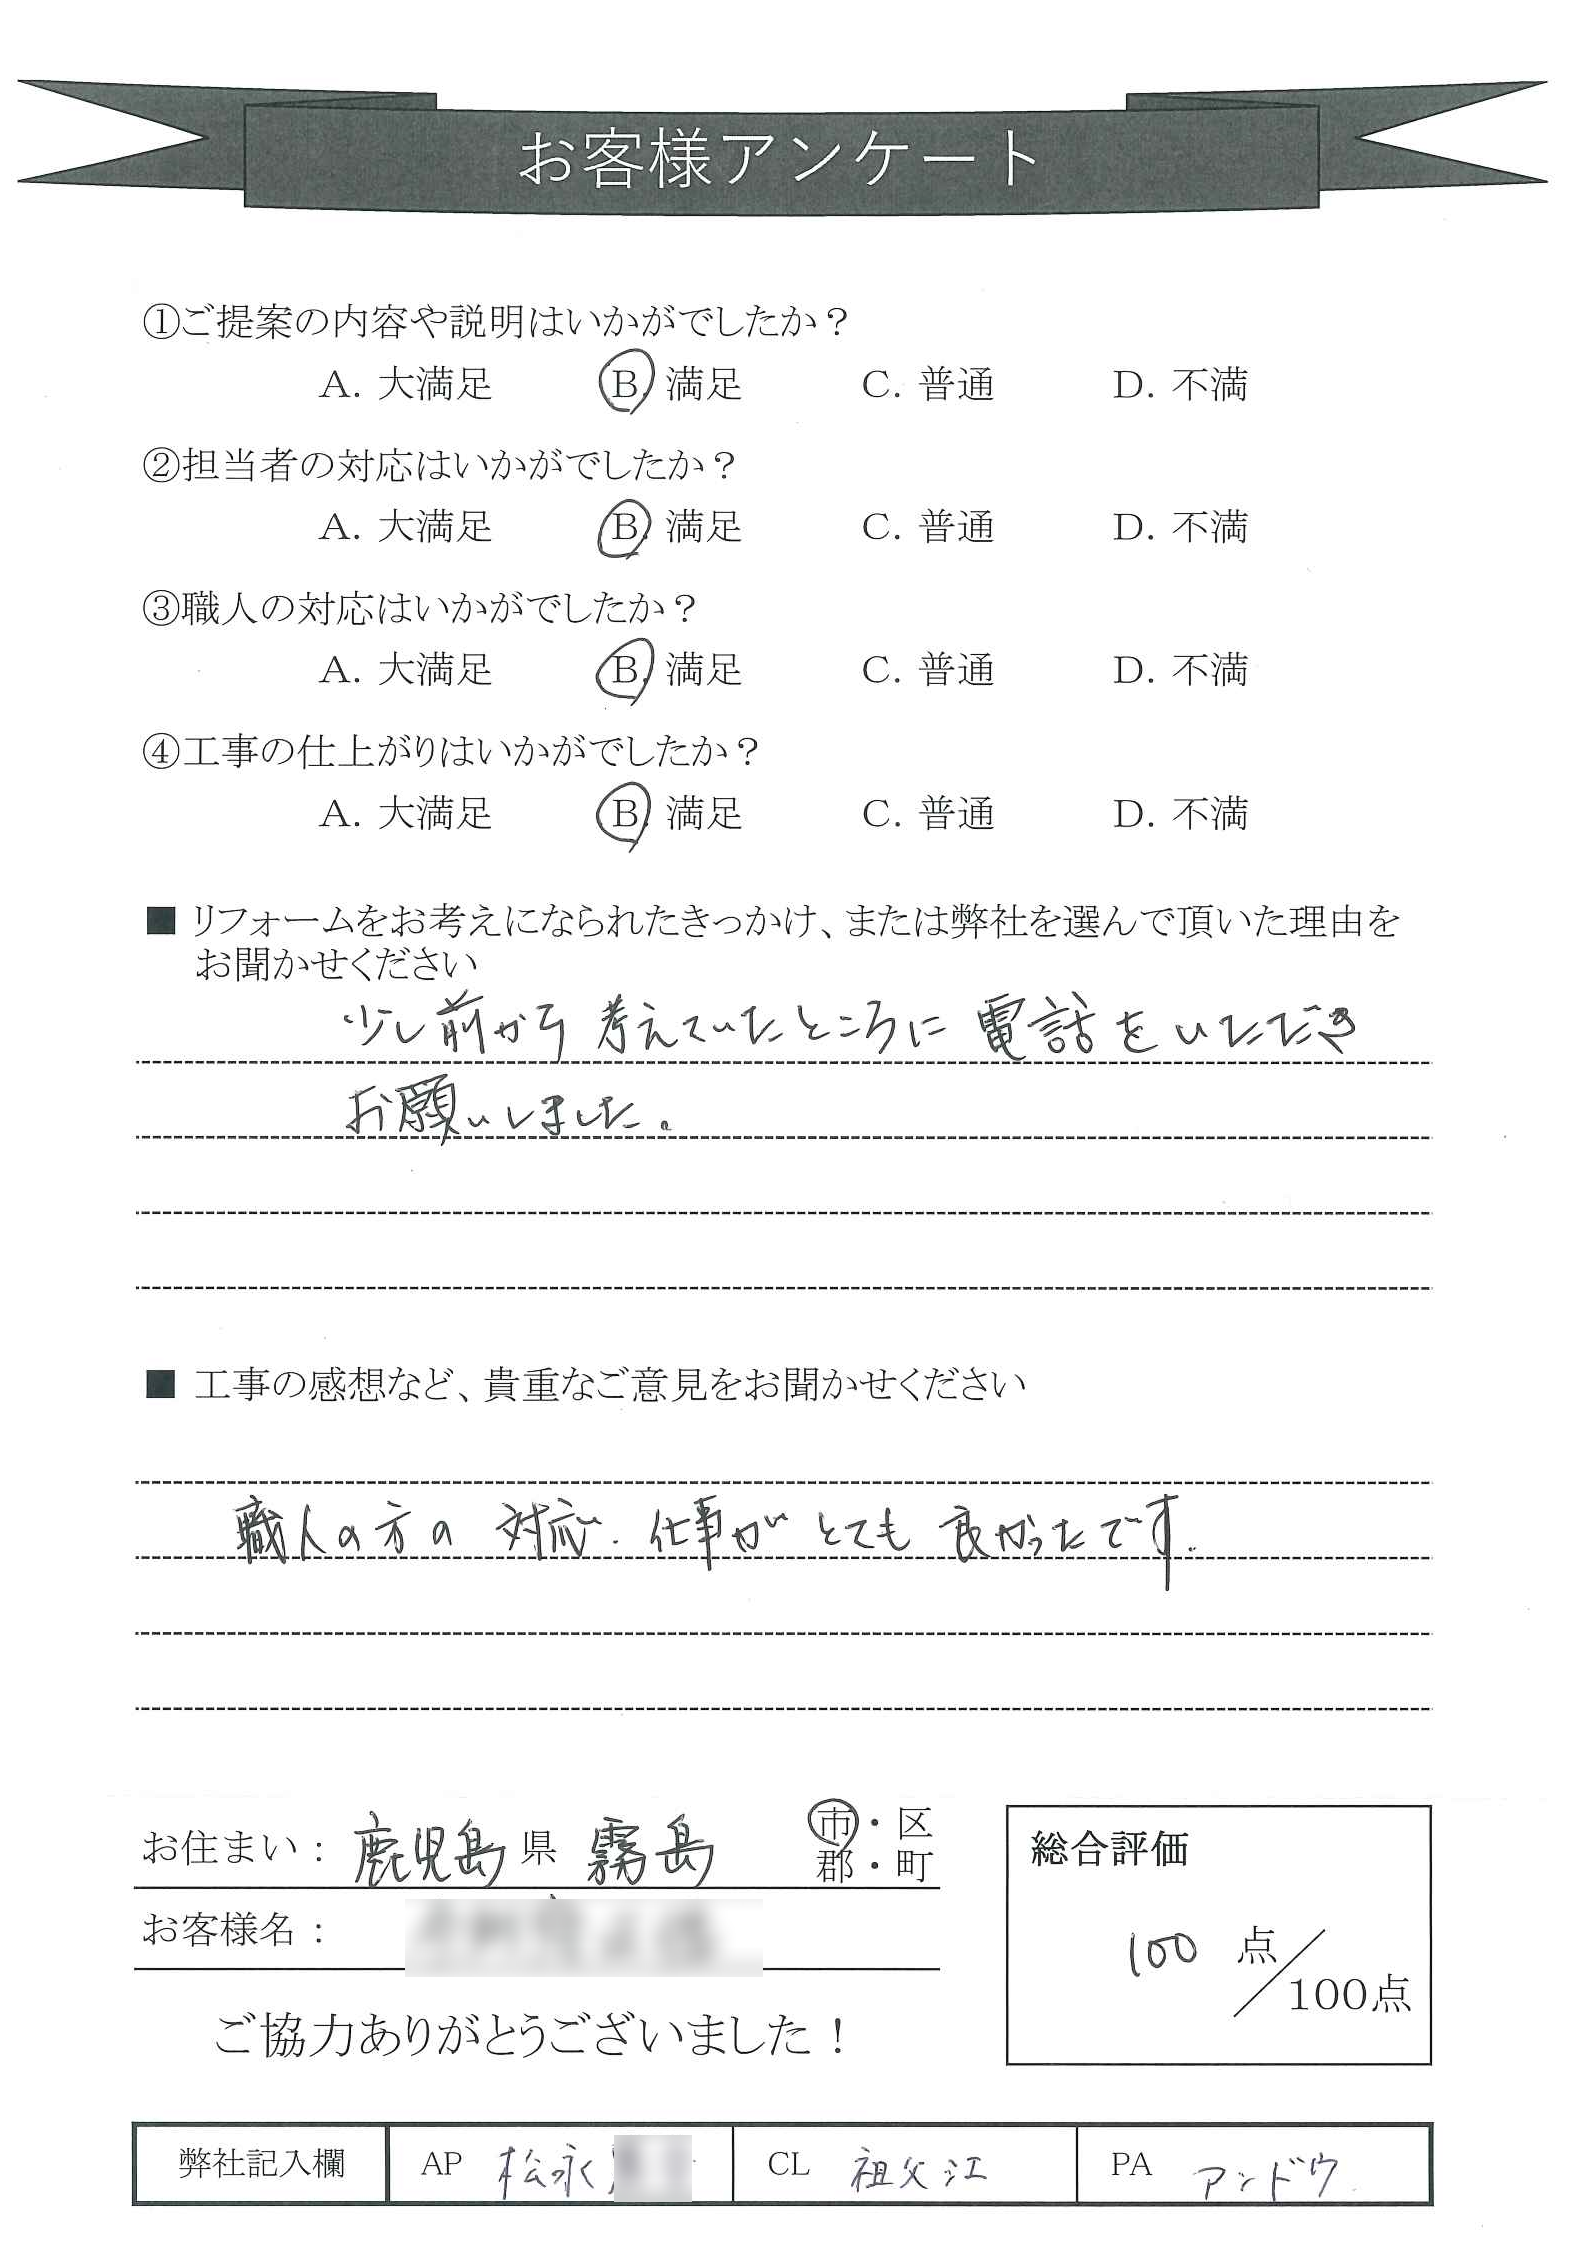 お客様アンケート
①ご提案の内容や説明はいかがでしたか？
A. 大満足 B. 満足 C. 普通 D. 不満
②担当者の対応はいかがでしたか？
A. 大満足 B. 満足 C. 普通 D. 不満
③職人の対応はいかがでしたか？
A. 大満足 B. 満足 C. 普通 D. 不満
④工事の仕上がりはいかがでしたか？
A. 大満足 B. 満足 C. 普通 D. 不満
■ リフォームをお考えになられたきっかけ、または弊社を選んで頂いた理由を
お聞かせください
少し前から考えていたところに電話をいただき
お願いしました。
■ 工事の感想など、貴重なご意見をお聞かせください
職人の方の対応、仕事がとても良かったです。
お住まい： 鹿児島 県 霧島 市・区
郡・町
お客様名：
総合評価
100 点／100点
ご協力ありがとうございました！
弊社記入欄 AP 松永 CL 祖父江 PA アンドウ